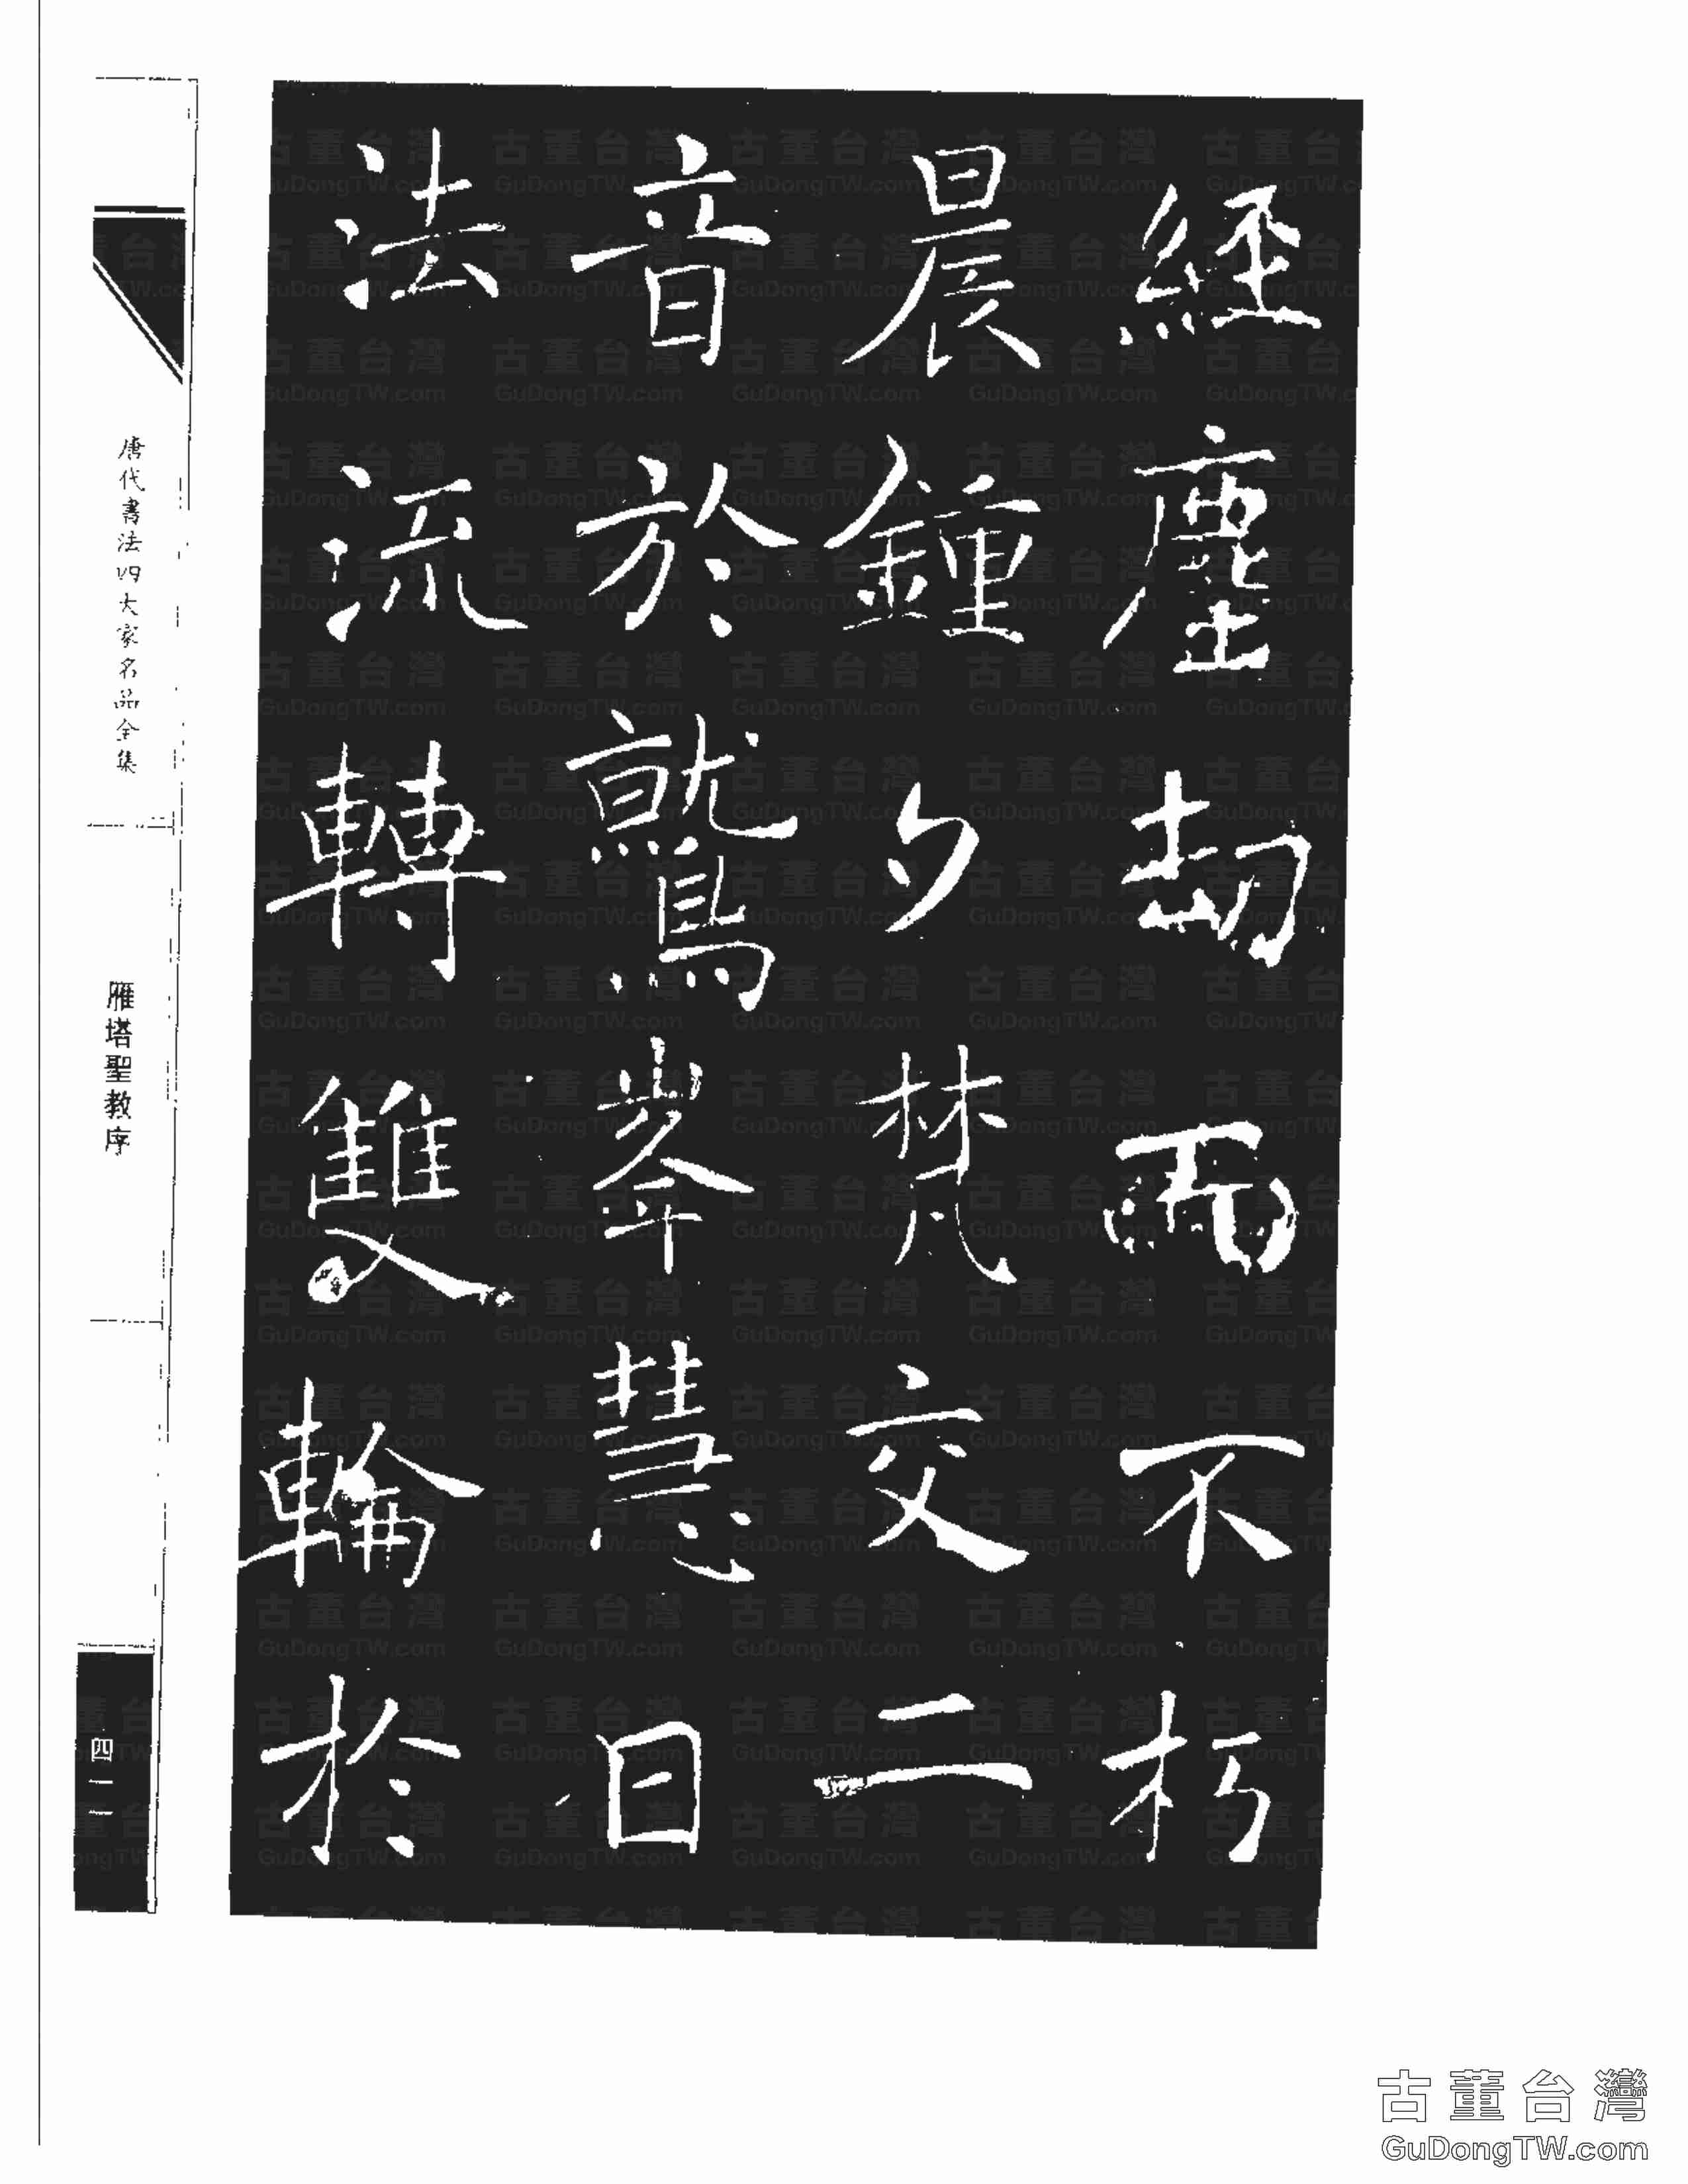 經塵劫而不朽
晨鍾夕梵交二
音於鷲峯慧日
法流轉雙輪於
唐代書法四大家名品全集
雁塔聖教序
四二
古董台灣
GuDongTW.com